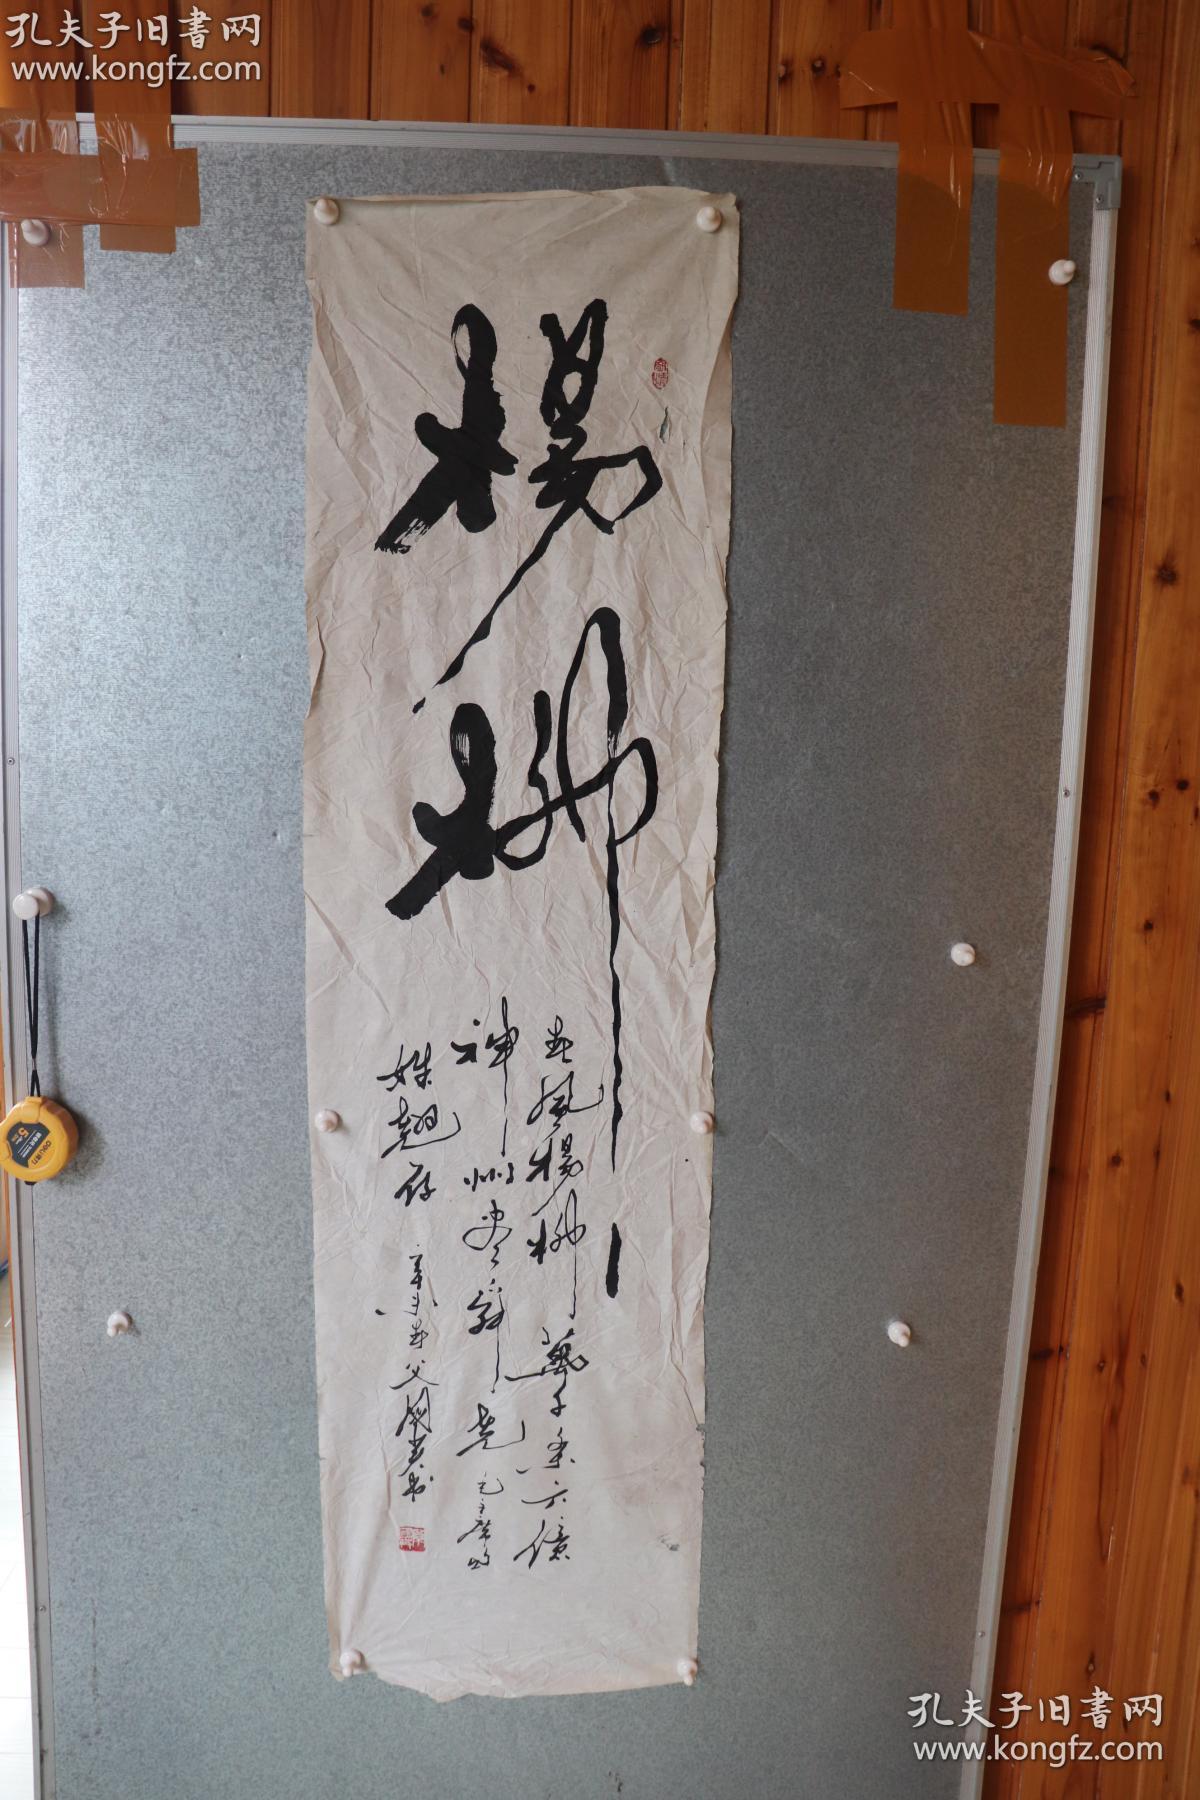 孔夫子旧書网
www.kongfz.com
楊柳
春風楊柳萬千条六億
神州尽舜堯毛主席的
姝翹存
辛未春父國
5
孔夫子旧書网
www.kongfz.com